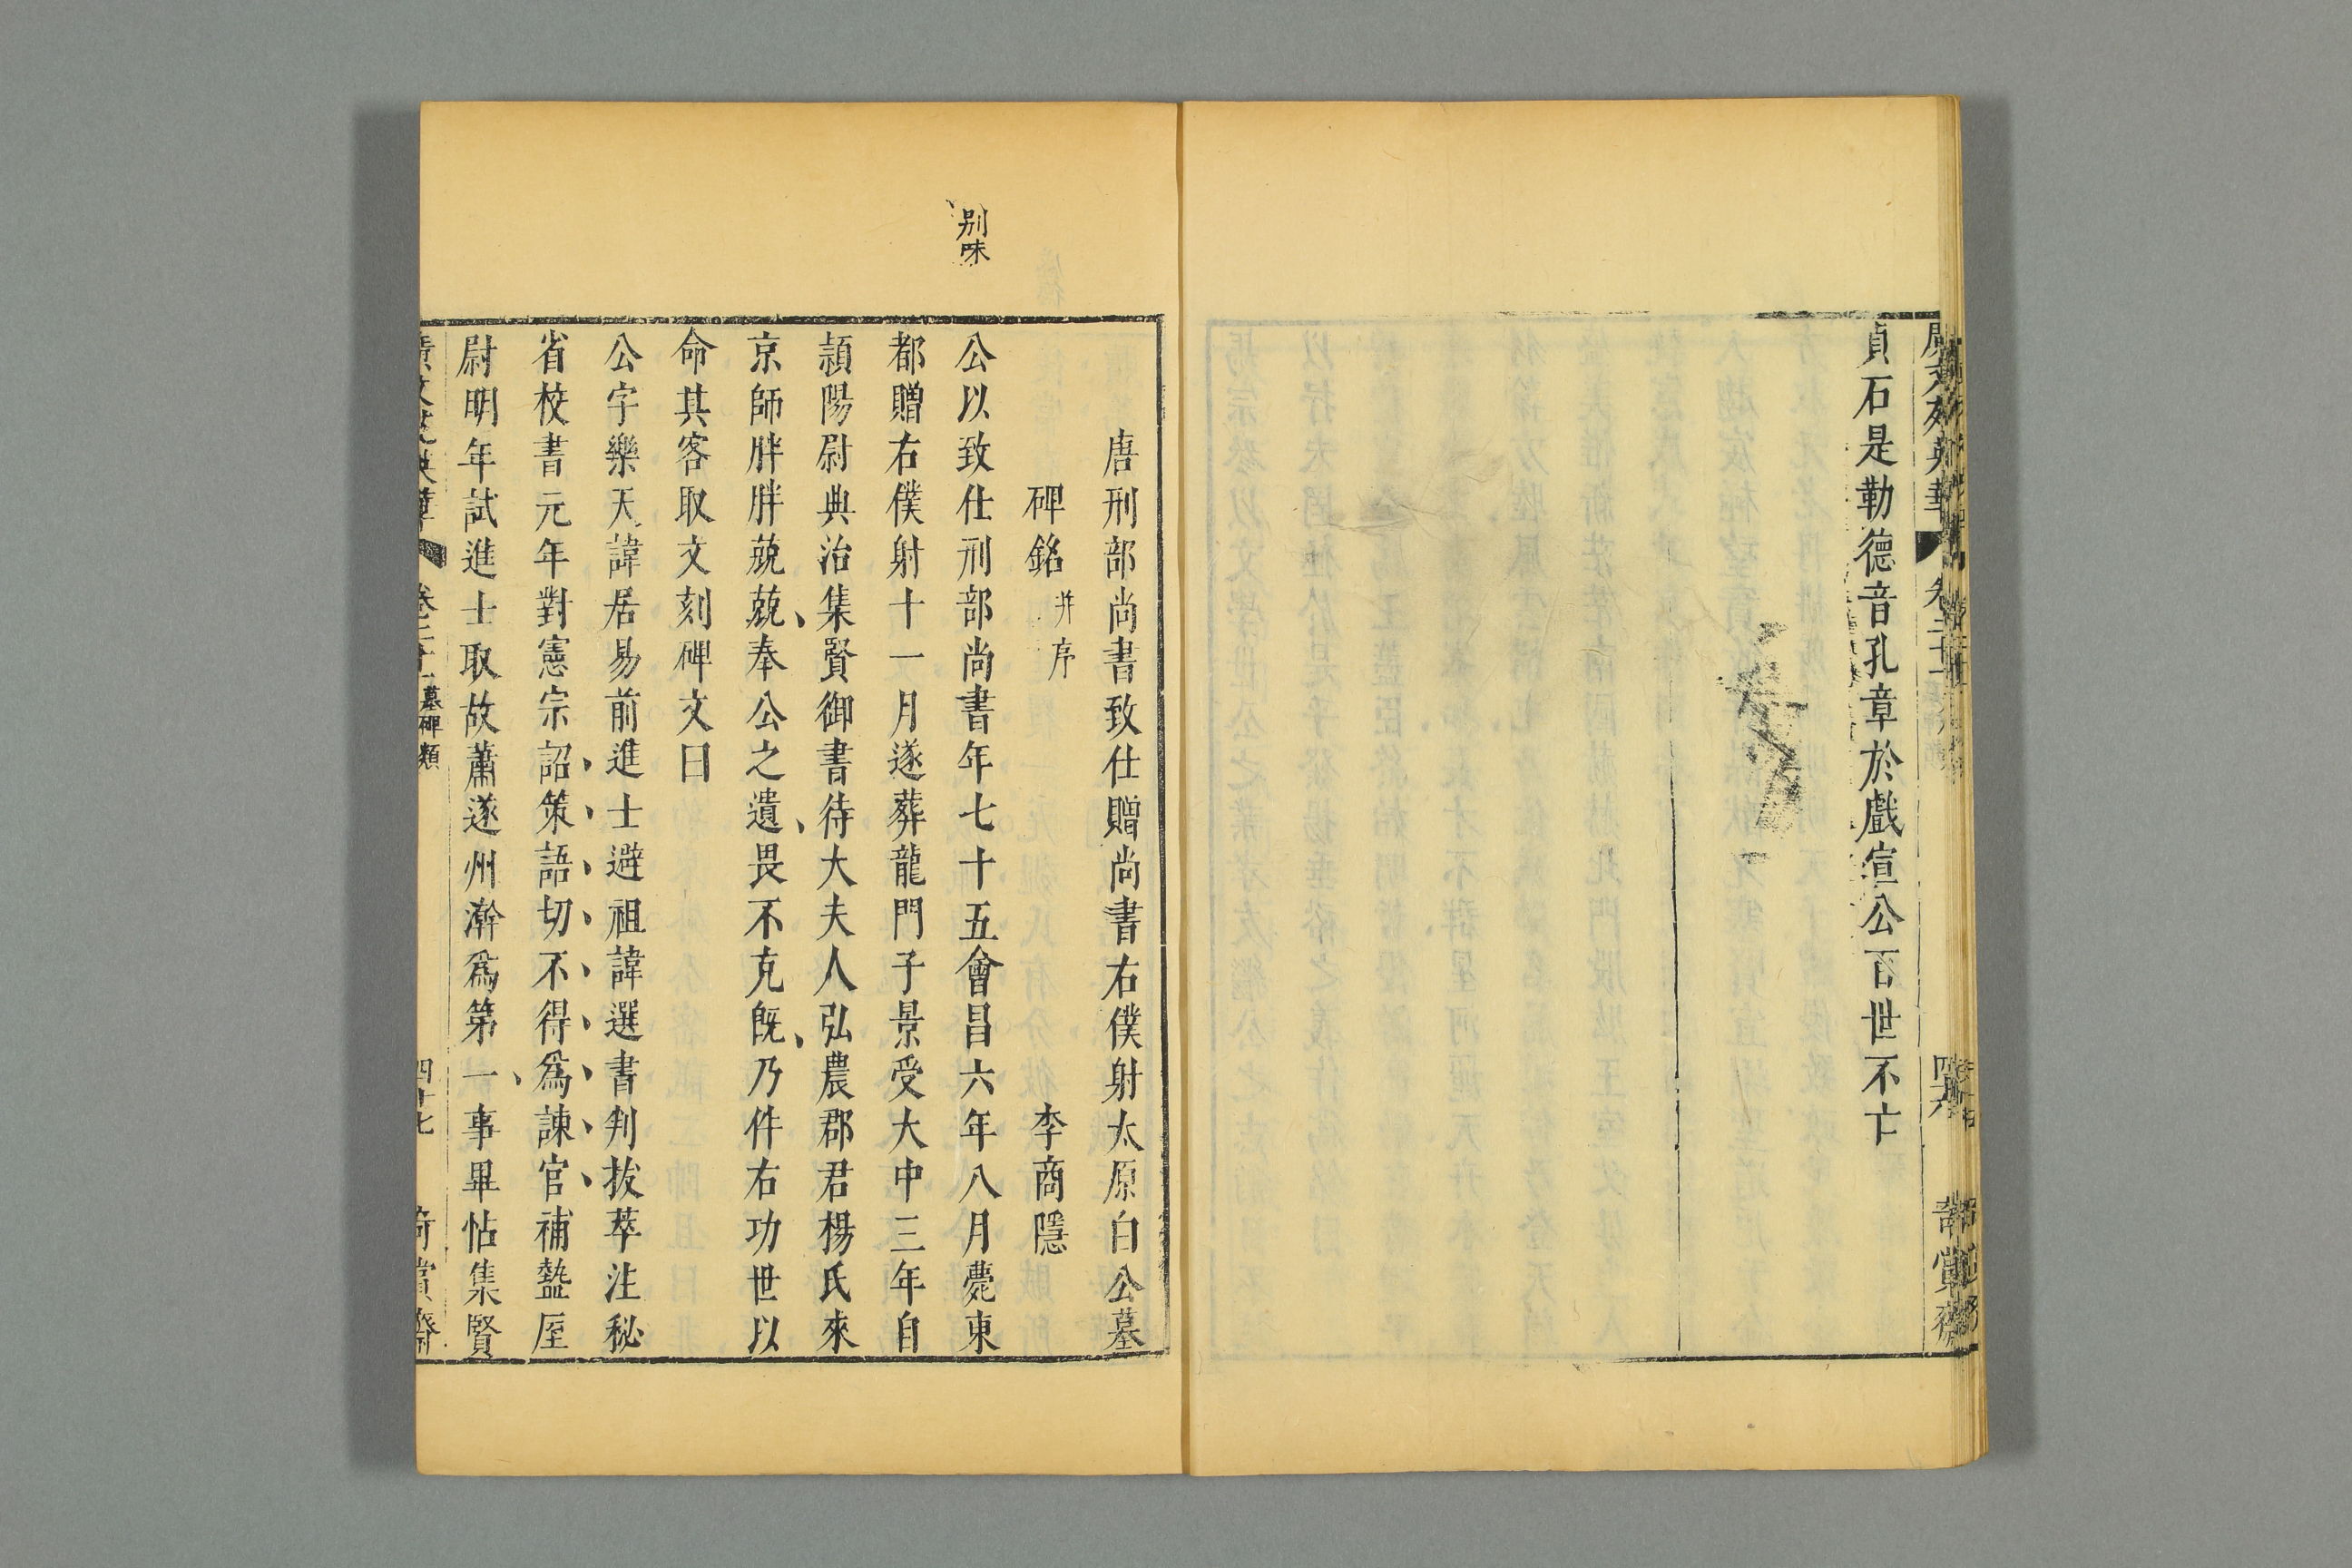 貞石是勒德音孔章於戲宣公百世不亡
別味
唐刑部尚書致仕贈尚書右僕射太原白公墓
碑銘并序 李商隱
公以致仕刑部尚書年七十五會昌六年八月薨東
都贈右僕射十一月遂葬龍門子景受大中三年自
潁陽尉典治集賢御書待大夫人弘農郡君楊氏來
京師胖胖兢兢奉公之遺畏不克既乃件右功世以
命其客取文刻碑文曰
公字樂天諱居易前進士避祖諱選書判拔萃注秘
省校書元年對憲宗詔策語切不得爲諫官補盩厔
尉明年試進士取故蕭遂州澣爲第一事畢帖集賢
卷二十一 墓碑類 四十七